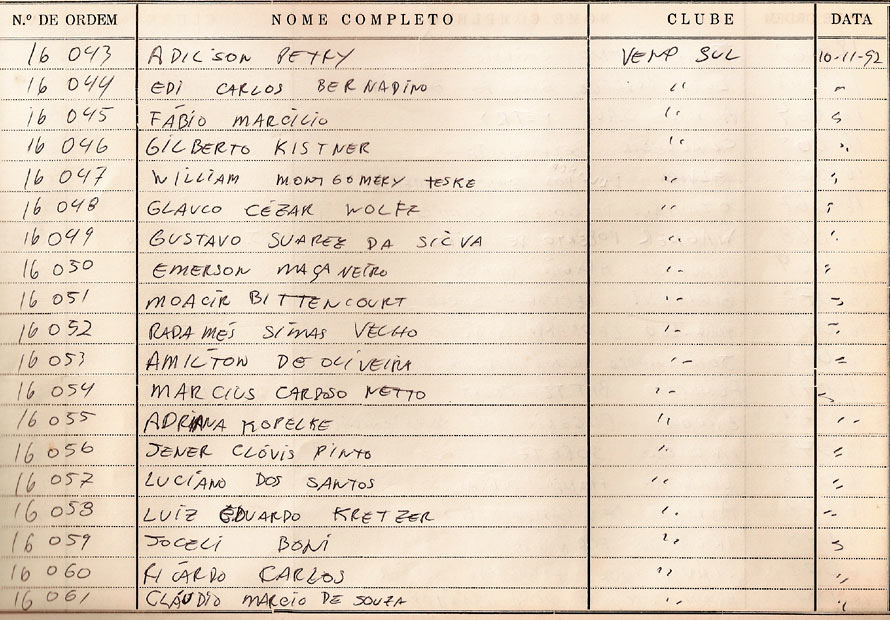 N.º DE ORDEM NOME COMPLETO CLUBE DATA
16 043 ADILSON PETRY VEMP SUL 10-11-92
16 044 EDI CARLOS BERNADINO "
16 045 FÁBIO MARCILIO "
16 046 GILBERTO KISTNER " "
16 047 WILLIAM MONTGOMERY TESKE " "
16 048 GLAUCO CÉZAR WOLFF " "
16 049 GUSTAVO SUAREZ DA SILVA " "
16 050 EMERSON MAÇANEIRO " "
16 051 MOACIR BITTENCOURT " "
16 052 RADAMÉS SIMAS VELHO " "
16 053 AMILTON DE OLIVEIRA " "
16 054 MARCIUS CARDOSO NETTO " "
16 055 ADRIANA KOPELKE " "
16 056 JENER CLÓVIS PINTO " "
16 057 LUCIANO DOS SANTOS " "
16 058 LUIZ EDUARDO KRETZER " "
16 059 JOCELI BONI "
16 060 RICARDO CARLOS " "
16 061 CLÁUDIO MARCIO DE SOUZA " "